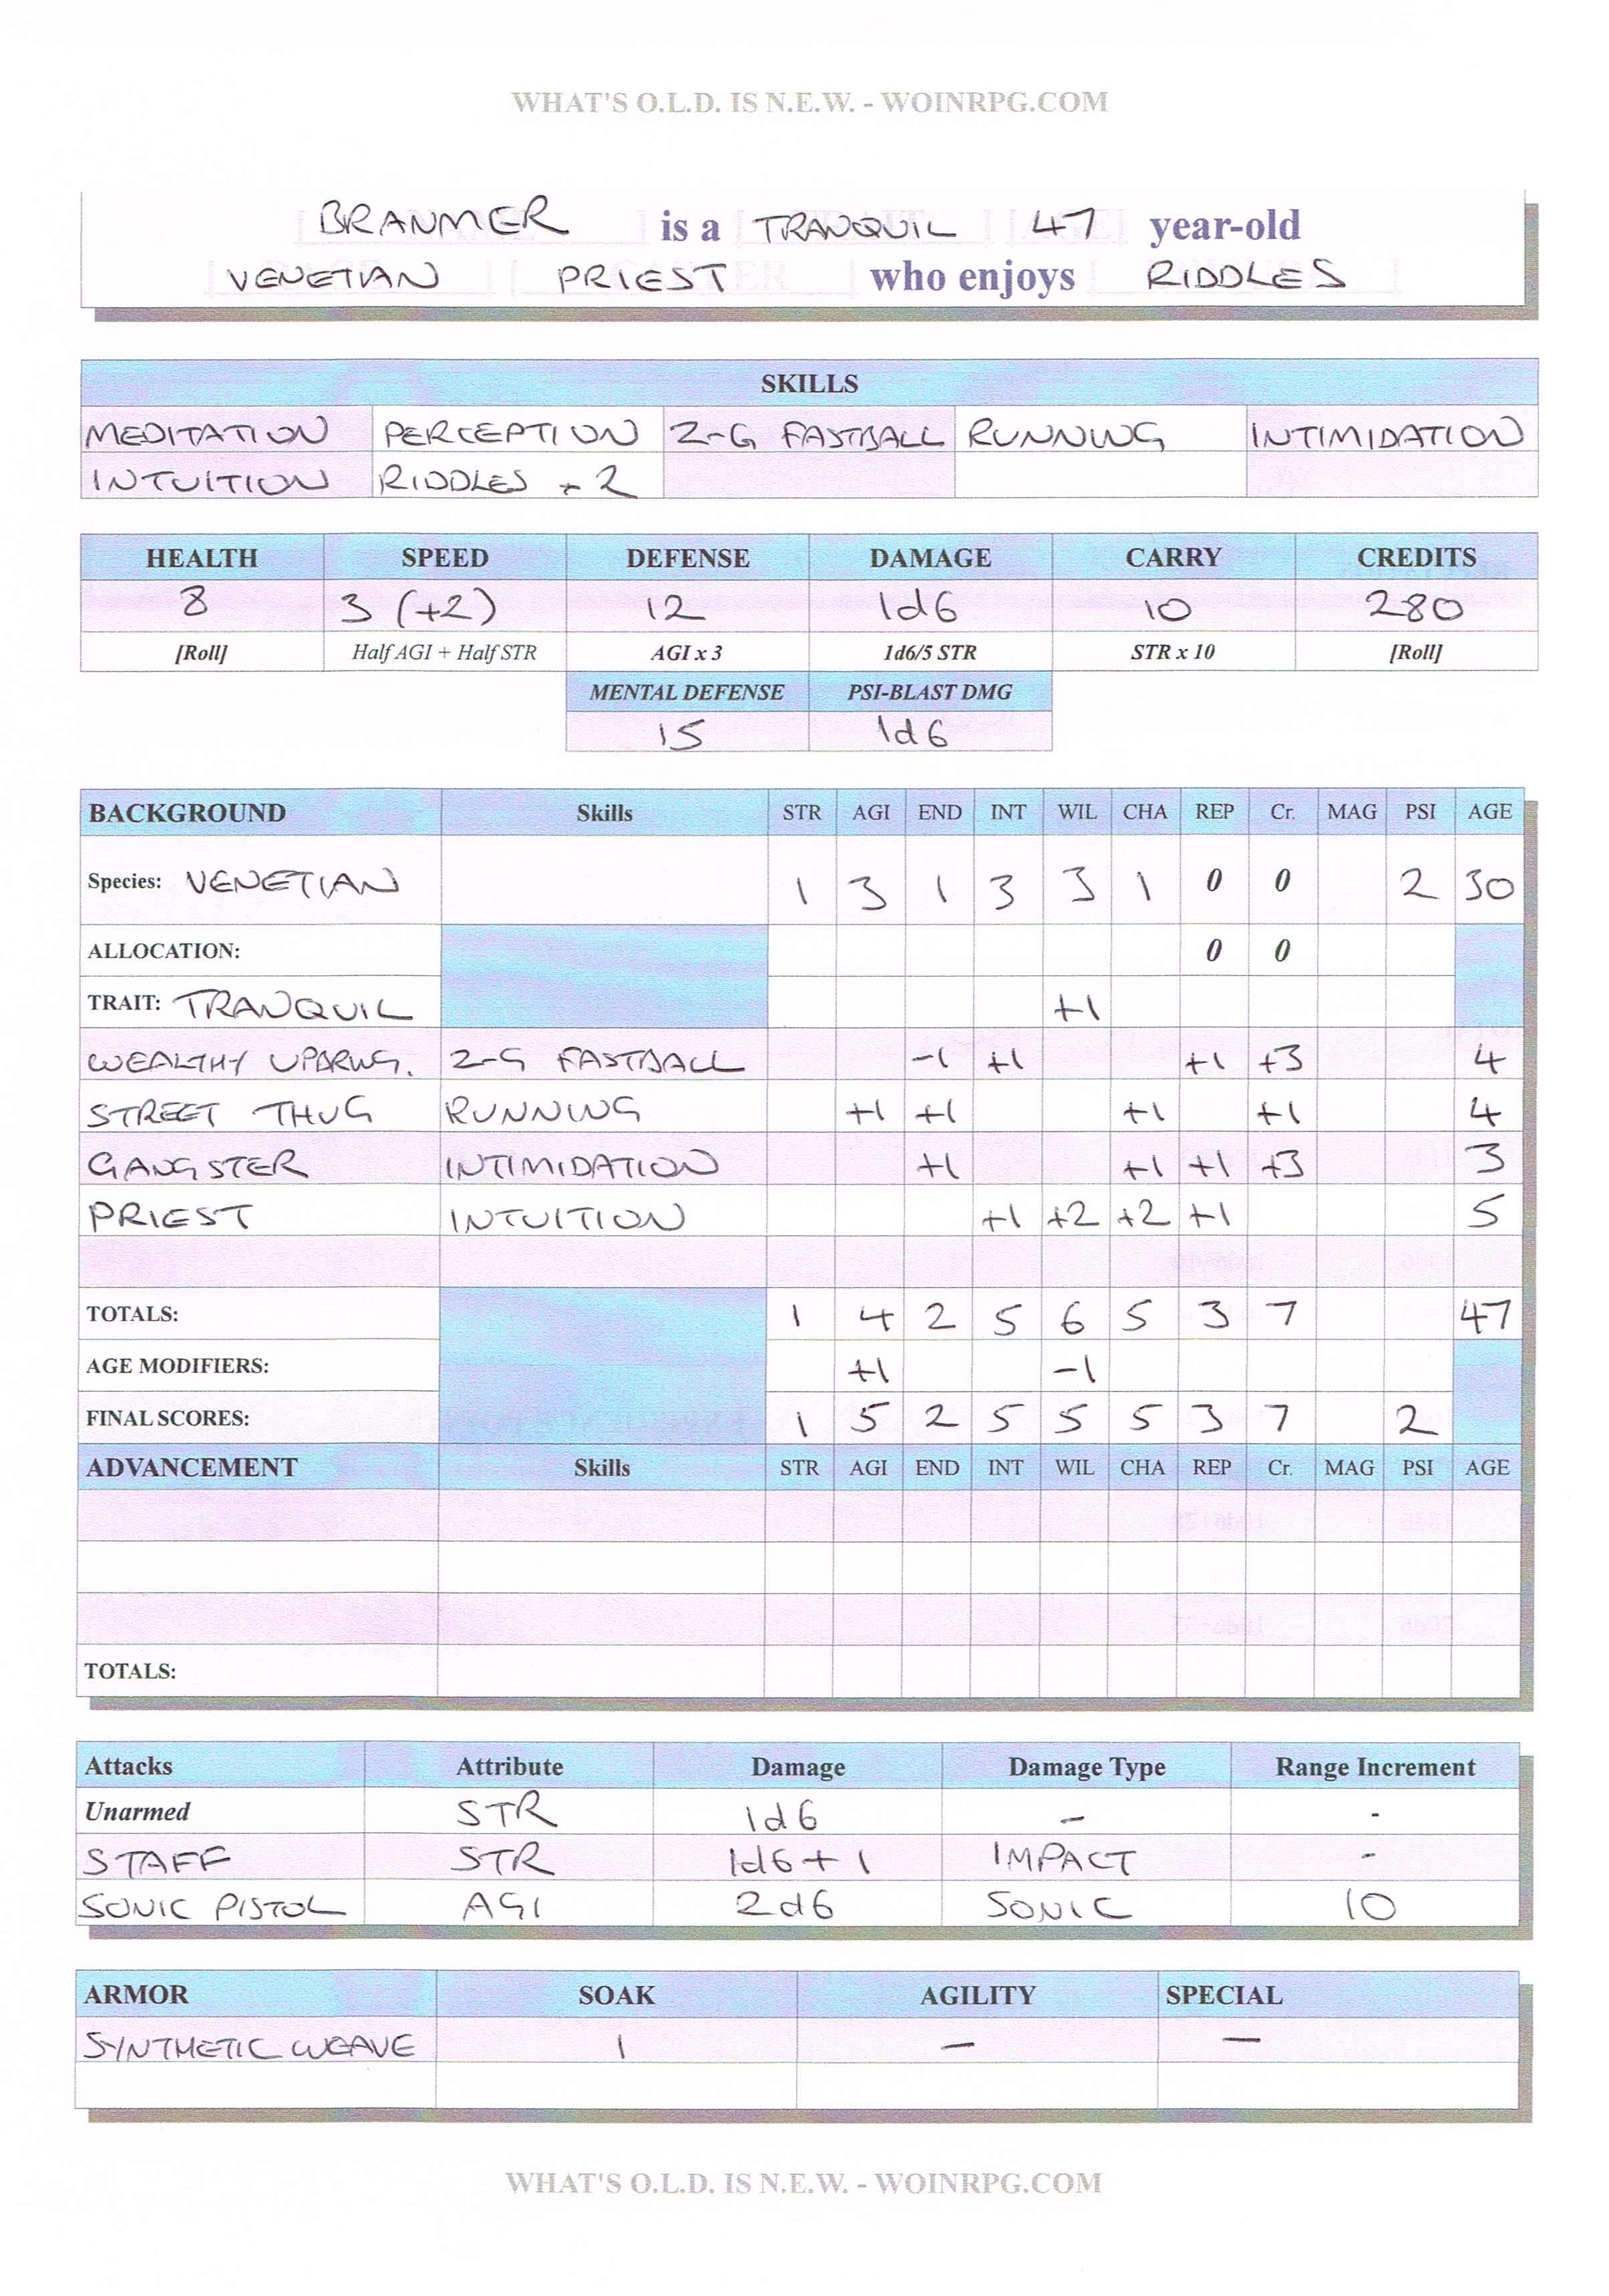 WHAT'S O.L.D. IS N.E.W. - WOINRPG.COM
BRANMER is a TRANQUIL 47 year-old
VENETIAN PRIEST who enjoys RIDDLES
SKILLS
MEDITATION PERCEPTION Z-G FASTBALL RUNNING INTIMIDATION
INTUITION RIDDLES +2
HEALTH SPEED DEFENSE DAMAGE CARRY CREDITS
8 3 (+2) 12 1d6 10 280
[Roll] Half AGI + Half STR AGI x 3 1d6/5 STR STR x 10 [Roll]
MENTAL DEFENSE PSI-BLAST DMG
15 1d6
BACKGROUND Skills STR AGI END INT WIL CHA REP Cr. MAG PSI AGE
Species: VENETIAN 1 3 1 3 3 1 0 0 2 30
ALLOCATION: 0 0
TRAIT: TRANQUIL +1
WEALTHY UPBRNG. Z-G FASTBALL -1 +1 +1 +3 4
STREET THUG RUNNING +1 +1 +1 +1 4
GANGSTER INTIMIDATION +1 +1 +1 +3 3
PRIEST INTUITION +1 +2 +2 +1 5
TOTALS: 1 4 2 5 6 5 3 7 47
AGE MODIFIERS: +1 -1
FINAL SCORES: 1 5 2 5 5 5 3 7 2
ADVANCEMENT Skills STR AGI END INT WIL CHA REP Cr. MAG PSI AGE
TOTALS:
Attacks Attribute Damage Damage Type Range Increment
Unarmed STR 1d6 - -
STAFF STR 1d6+1 IMPACT -
SONIC PISTOL AGI 2d6 SONIC 10
ARMOR SOAK AGILITY SPECIAL
SYNTHETIC WEAVE 1 - -
WHAT'S O.L.D. IS N.E.W. - WOINRPG.COM